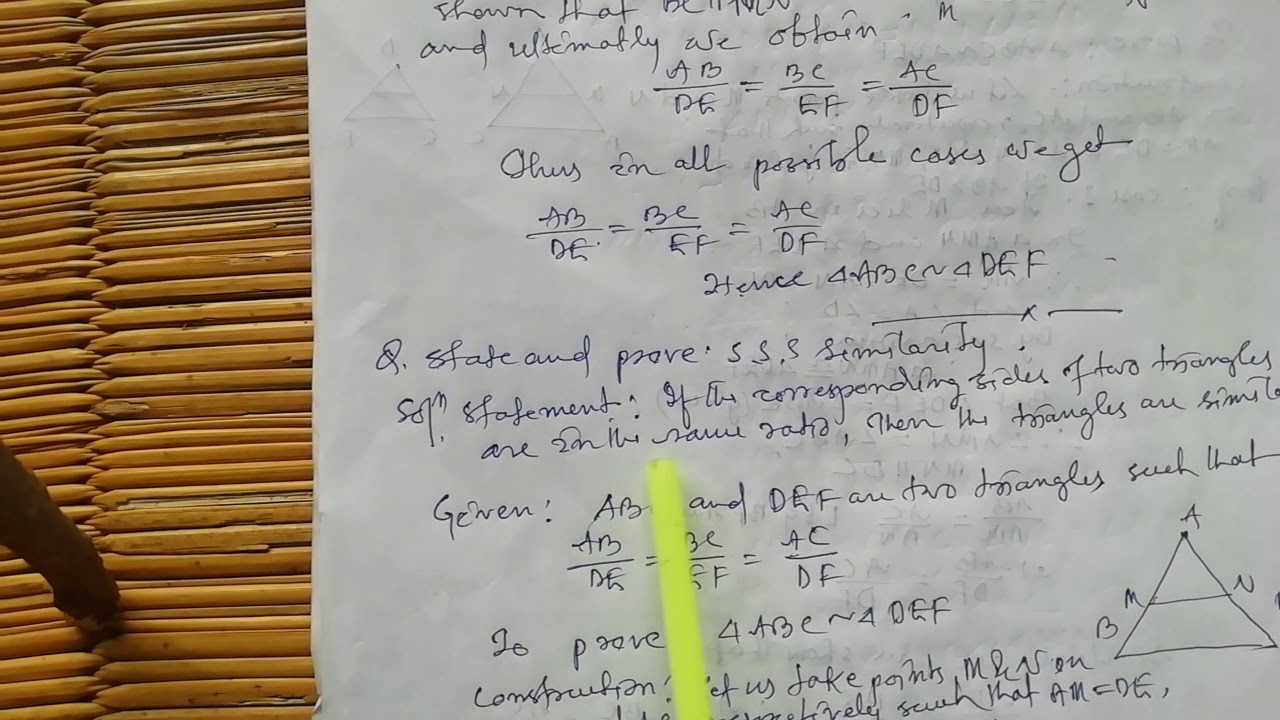 shown that BC||MN M N
and ultimatly we obtain
AB/DE = BC/EF = AC/DF
Thus in all possible cases we get
AB/DE = BC/EF = AC/DF
Hence △ABC ~ △DEF
Q. State and prove S.S.S similarity.
Solⁿ. Statement: If the corresponding sides of two triangles
are in the same ratio, then the triangles are simila
Given: AB and DEF are two triangles such that
AB/DE = BC/EF = AC/DF
A
M N
B
To prove △ABC ~ △DEF
Construction: let us take points M & N on
respectively such that AM = DE,